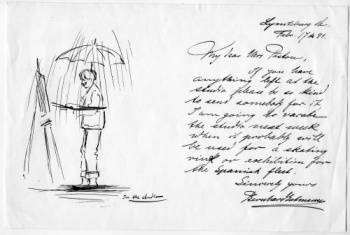 Lyndeburg Ave.
Febr. 17th 91.
My dear Mrs
If you have
anything left at the
studio please be so kind
to send somebody for it
I am going to vacate
the studio next week
when it probably will
be used for a skating
rink or exhibition for
the Spanish fleet.
Sincerely yours
In the studio